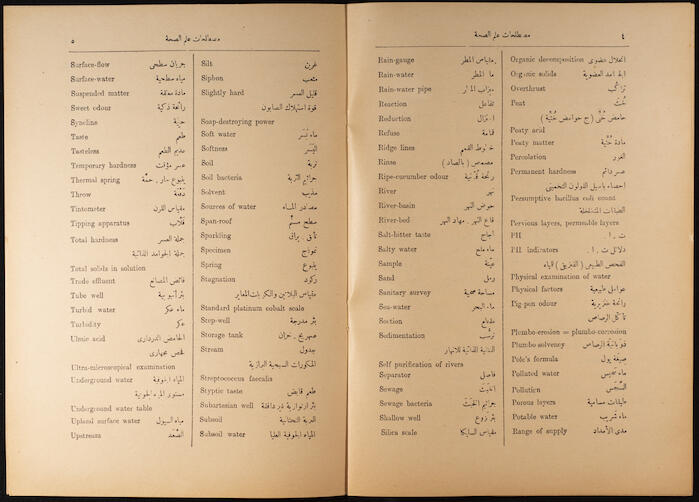 مصطلحات علم الصحة ٤
Organic decomposition انحلال عضوي
Organic solids الجوامد العضوية
Overthrust تراكب
Peat خُثّ
حامض خُثّي (ج حوامض خُثّية)
Peaty acid
Peaty matter مادة خُثّية
Percolation
Permanent hardness عسر دائم
احصاء باسيل القولون التخميني
Persumptive bacillus coli count
الطبقات المتخلخلة
Pervious layers, permeable layers
PH
PH indicators
الفحص الطبيعي (الفيزيقي) للمياه
Physical examination of water
Physical factors عوامل طبيعية
Pig-pen odour رائحة خنزيرية
تآكل الرصاص
Plumbo-erosion = plumbo-corrosion
Plumbo solvency ذوبانية الرصاص
Pole's formula صيغة پول
Polluted water ماء نجيس
Pollution التنجّس
Porous layers طبقات مسامية
Potable water ماء شريب
Range of supply مدى الأمداد
Rain-gauge مقياس المطر
Rain-water ماء المطر
Rain-water pipe ميزاب المطر
Reaction تفاعل
Reduction اختزال
Refuse قمامة
Ridge lines خطوط القمم
Rinse مصمص (بالصاد)
Ripe-cucumber odour
River نهر
River-basin حوض النهر
River-bed قاع النهر . مهاد النهر
Salt-bitter taste أجاج
Salty water ماء مالح
Sample عيّنة
Sand رمل
Sanitary survey مساحة صحية
Sea-water ماء البحر
Section مقطع
Sedimentation ترسّب
التنقية الذاتية للأنهار
Self purification of rivers
Separator فاصل
Sewage الخبَث
Sewage bacteria جراثيم الخبَث
Shallow well بئر نزوع
Silica scale مقياس السليكا
مصطلحات علم الصحة ٥
Silt غرين
Siphon مثعب
Slightly hard قليل العسر
قوة استهلاك الصابون
Soap-destroying power
Soft water ماء يَسَر
Softness اليُسْر
Soil تربة
Soil bacteria جراثيم التربة
Solvent مذيب
Sources of water مصادر المياه
Span-roof سطح مسنّم
Sparkling تألق . براق
Specimen نموذج
Spring ينبوع
Stagnation ركود
مقياس البلاتين والكوبلت المعاير
Standard platinum cobalt scale
Step-well بئر مدرجة
Storage tank صهريج . خزان
Stream جدول
المكورات السبحية البرازية
Streptococcus faecalis
Styptic taste طعم قابض
Subartesian well بئر ارتوازية غير دافقة
Subsoil التربة التحتانية
Subsoil water المياه الجوفية العليا
Surface-flow جريان سطحي
Surface-water مياه سطحية
Suspended matter مادة معلقة
Sweet odour رائحة ذكية
Syncline
Taste طعم
Tasteless عديم الطعم
Temporary hardness عسر مؤقت
Thermal spring ينبوع حار . حمّة
Throw
Tintometer مقياس اللون
Tipping apparatus قلّاب
Total hardness جملة العسر
جملة الجوامد الذائبة
Total solids in solution
Trade effluent فائض المصانع
Tube well بئر أنبوبية
Turbid water ماء عكر
Turbidity عكر
Ulmic acid الحامض الدرداري
فحص مجهاري
Ultra-microscopical examination
Underground water المياه الجوفية
مستوى المياه الجوفية
Underground water table
Upland surface water مياه السيول
Upstream الصُّعُد